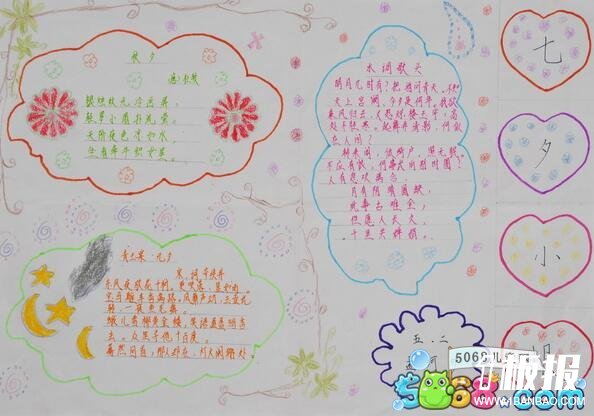 秋夕
唐:杜牧
银烛秋光冷画屏,
轻罗小扇扑流萤。
天阶夜色凉如水,
坐看牵牛织女星。
水调歌头
明月几时有?把酒问青天。不知
天上宫阙,今夕是何年。我欲
乘风归去,又恐琼楼玉宇,高
处不胜寒。起舞弄清影,何似
在人间?
转朱阁,低绮户,照无眠。
不应有恨,何事长向别时圆?
人有悲欢离合,
月有阴晴圆缺,
此事古难全,
但愿人长久,
千里共婵娟。
青玉案 元夕
宋:词 辛弃疾
东风夜放花千树。更吹落、星如雨。
宝马雕车香满路。凤箫声动,玉壶光
转,一夜鱼龙舞。
蛾儿雪柳黄金缕,笑语盈盈暗香
去。众里寻他千百度。
蓦然回首,那人却在,灯火阑珊处
七
夕
小
报
五.二
5068儿
5068.com
板报
WWW.1BANBAO.COM